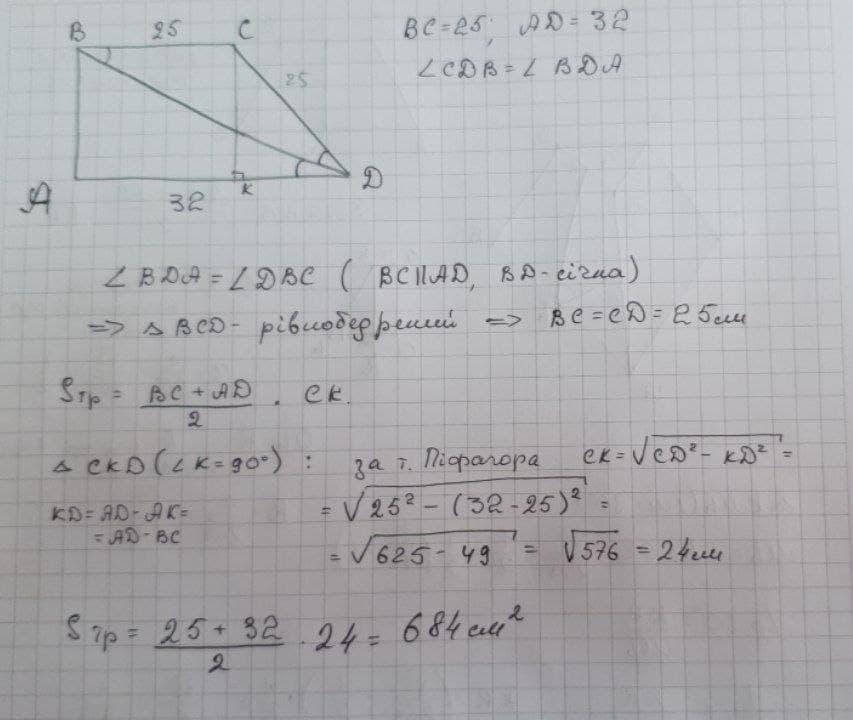 B 25 C
BC=25; AD=32
∠CDB=∠BDA
25
A 32 K D
∠BDA=∠DBC (BC||AD, BD-січна)
=> △BCD- рівнобедрений => BC=CD=25см
Sтр = (BC+AD)/2 · CK.
△CKD(∠K=90°): за т. Піфагора CK=√(CD²-KD²)=
KD=AD-AK=
=AD-BC
=√(25²-(32-25)²)=
=√(625-49)=√576=24см
Sтр=(25+32)/2·24=684см²